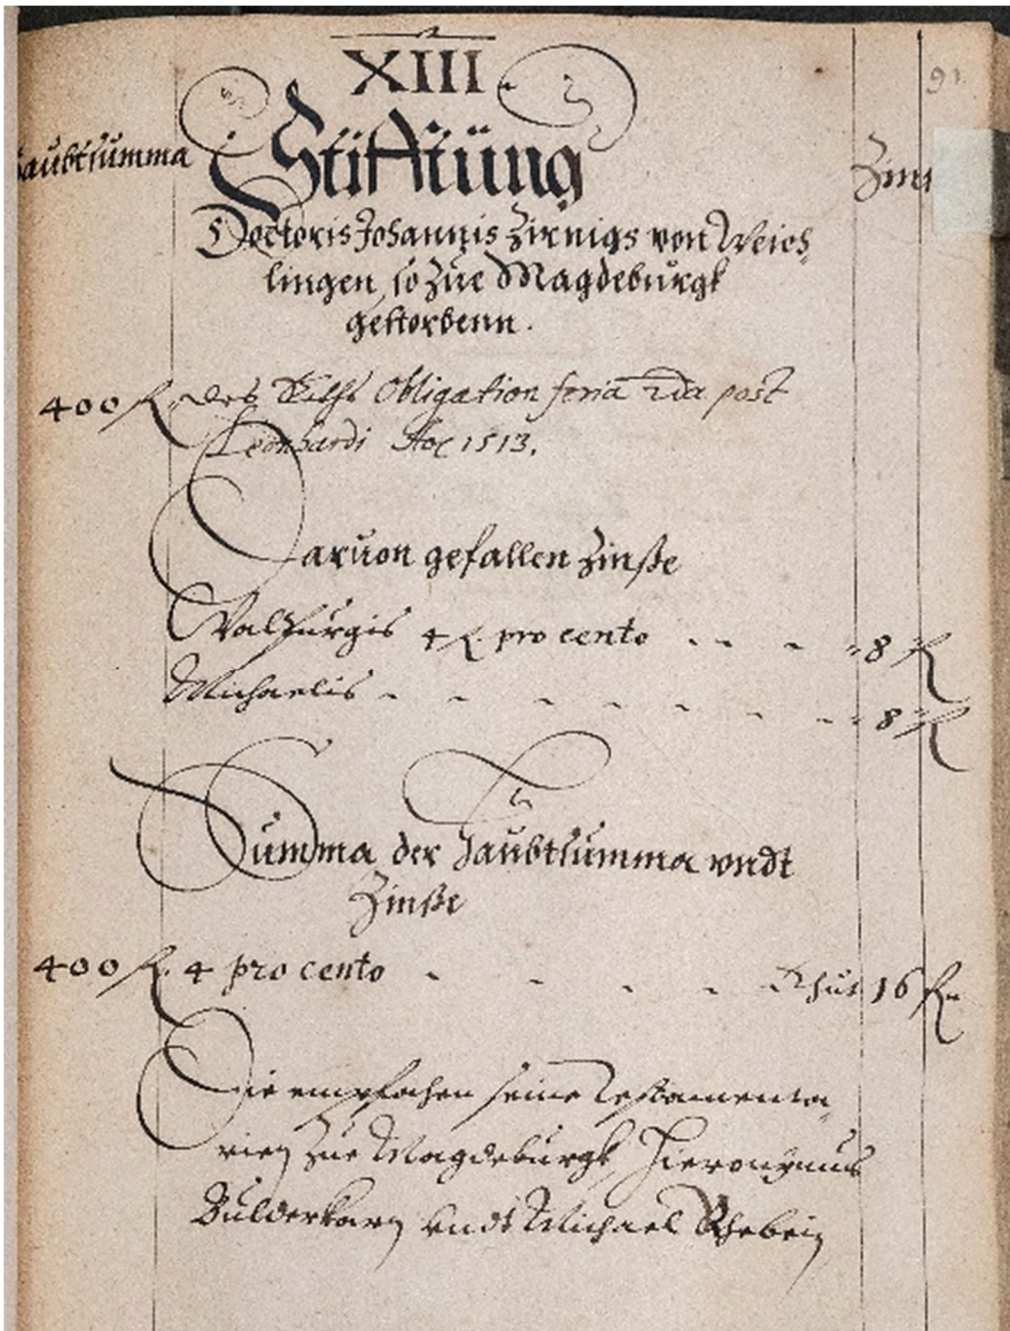 XIII.
91.
Haubtsumma
Stifftüng
Zinß
Doctoris Johannis Zirnigs von Weich,
lingen, so züe Magdebürgk
gestorbenn.
400 fl. des Obligation feria 2da post
Leonhardi Aoc 1513.
Daruon gefallen Zinße
Walpürgis 4 fl. pro cento - - - 8 fl
Michaelis - - - - - - - 8 fl
Summa der Haübtsumma vndt
Zinße
400 fl. 4 pro cento - - - - - thut 16 fl
Die empfahen seine Testamenta,
rien züe Magdebürgk, Hieronymus
vndt Michael